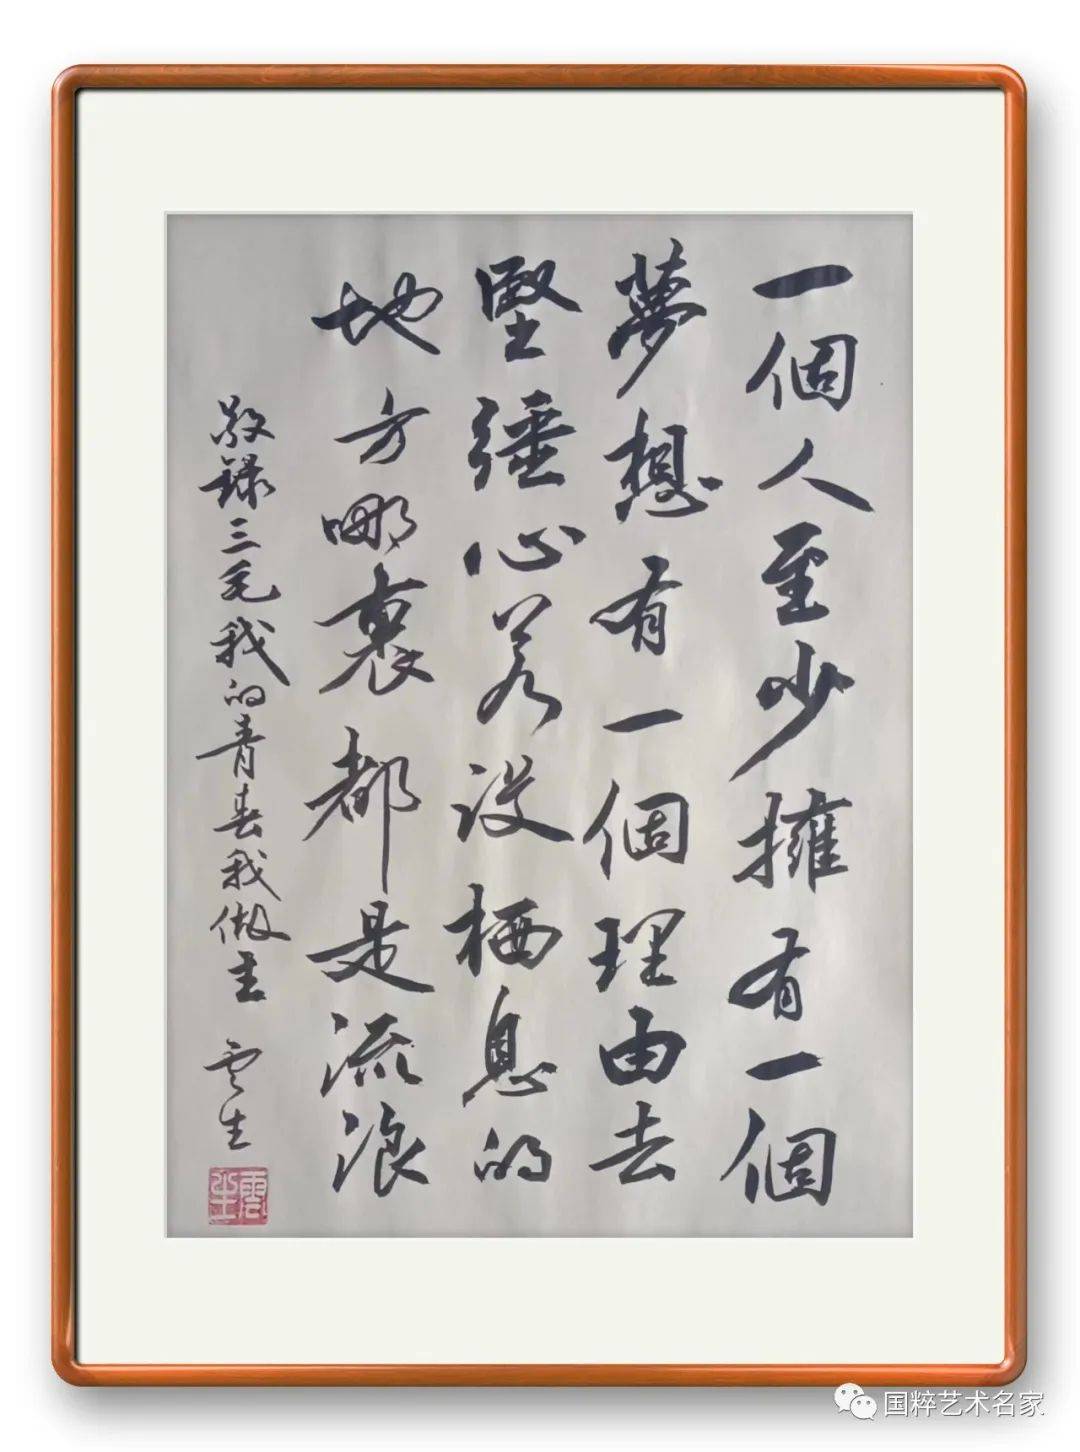 一個人至少擁有一個
夢想有一個理由去
堅强心若没栖息的
地方哪裏都是流浪
敬録三毛我的青春我做主 雲生
雲生
国粹艺术名家